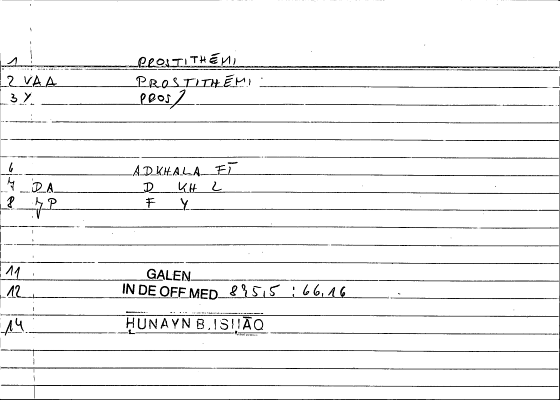 1 PROSTITHĒMI
2 VAA PROSTITHĒMI
3 Y PROS/
6 ADKHALA FĪ
7 DA D KH L
8 7P F Y
11 GALEN
12 IN DE OFF MED 895,5 : 66,16
14 ḤUNAYN B. ISḤĀQ